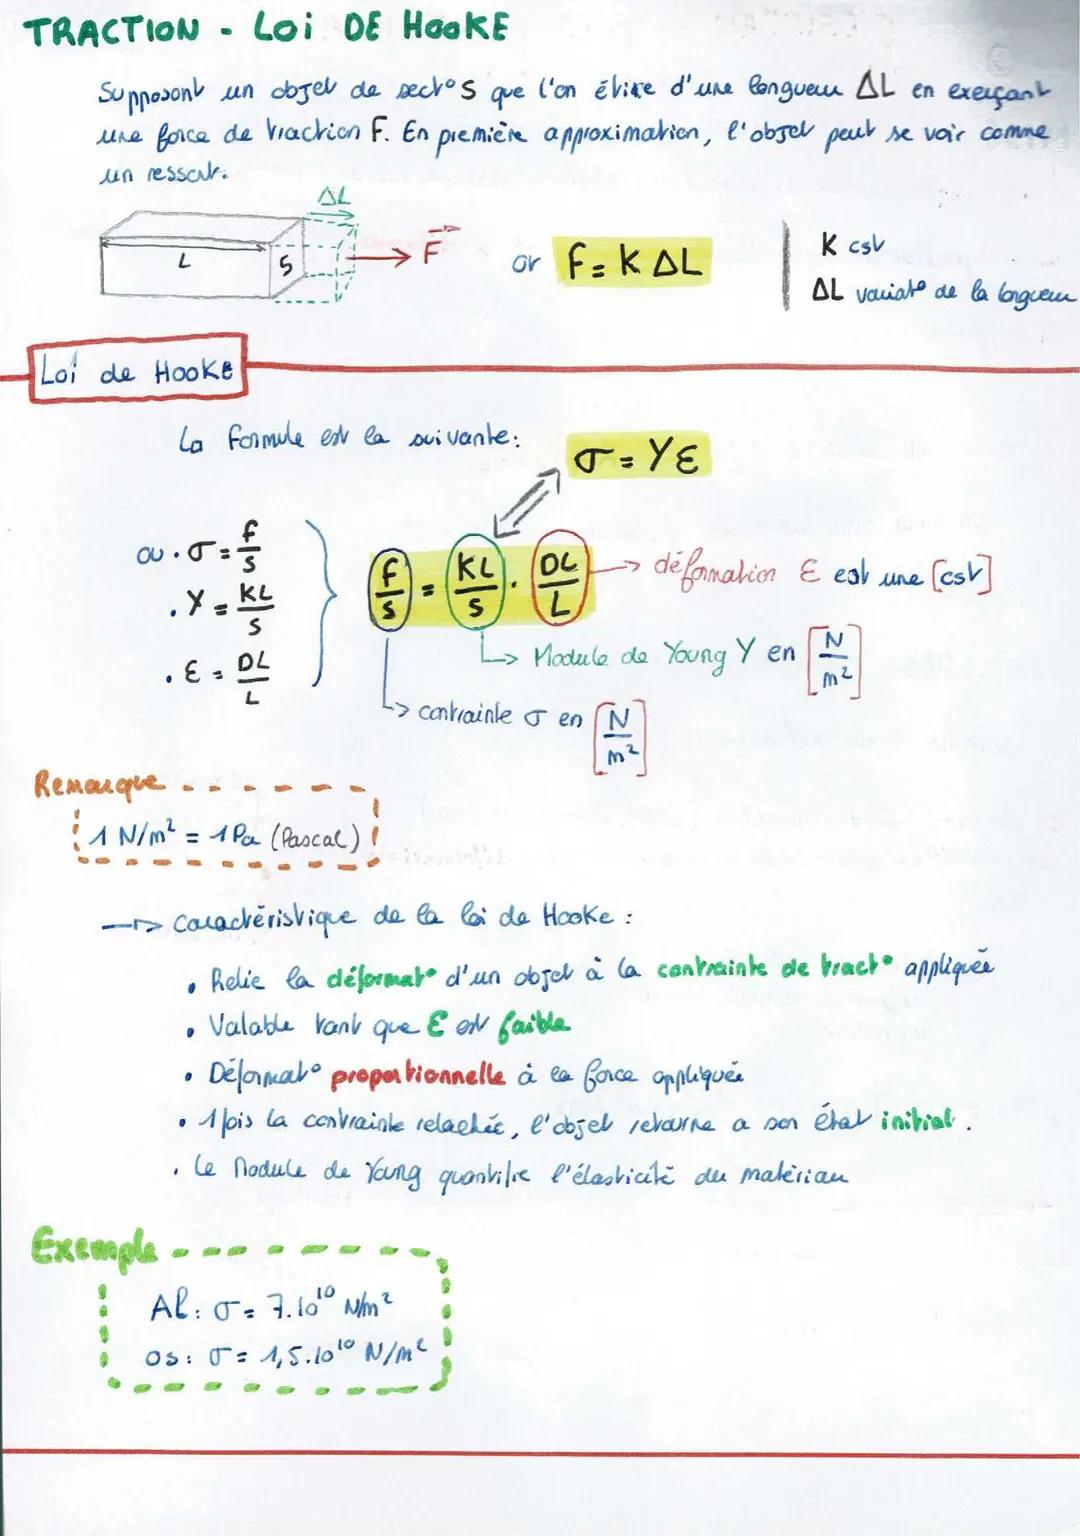 TRACTION - Loi DE HOOKE
Supposont un objet de sect° S que l'on étire d'une longueur ΔL en exerçant
une force de traction F. En première approximation, l'objet peut se voir comme
un ressort.
ΔL
L
S
F
or F = K ΔL
K cst
ΔL variat° de la longueur
Loi de Hooke
La formule est la suivante:
σ = Yε
ou . σ = F/S
. Y = KL/S
. ε = DL/L
F/S = KL/S . DL/L
→ déformation ε est une [cst]
→ Module de Young Y en [N/m²]
→ contrainte σ en [N/m²]
Remarque
1 N/m² = 1 Pa (Pascal)
→ caractéristique de la loi de Hooke :
• Relie la déformat° d'un objet à la contrainte de tract° appliquée
• Valable tant que ε est faible
• Déformat° proportionnelle à la force appliquée
• 1 fois la contrainte relachée, l'objet retourne a son état initial.
• Le Module de Young quantifie l'élasticité du matériau
Exemple
Al : σ = 7.10¹⁰ N/m²
os : σ = 1,5.10¹⁰ N/m²